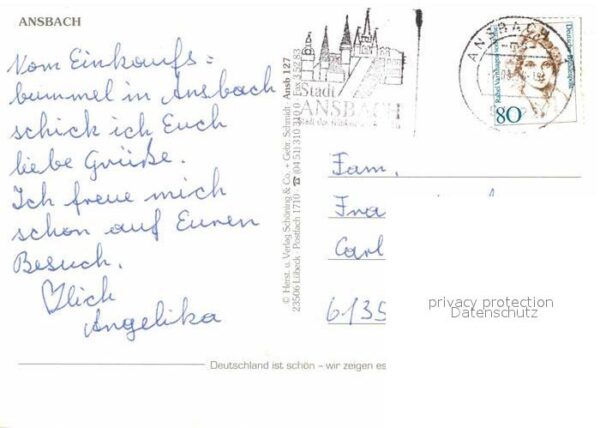 ANSBACH
Vom Einkaufs=
bummel in Ansbach
schick ich Euch
liebe Grüße.
Ich freue mich
schon auf Euren
Besuch.
♡lich
Angelika
© Herst. u. Verlag Schöning & Co. + Gebr. Schmidt Ansb 127
23506 Lübeck · Postfach 1710 ☎ (04 51) 310 310
Stadt
ANSBACH
ANSBACH
Deutsche Bundespost
Rahel Varnhagen von Ense
80
Fam.
Fra
Carl
6135
privacy protection
Datenschutz
Deutschland ist schön – wir zeigen es